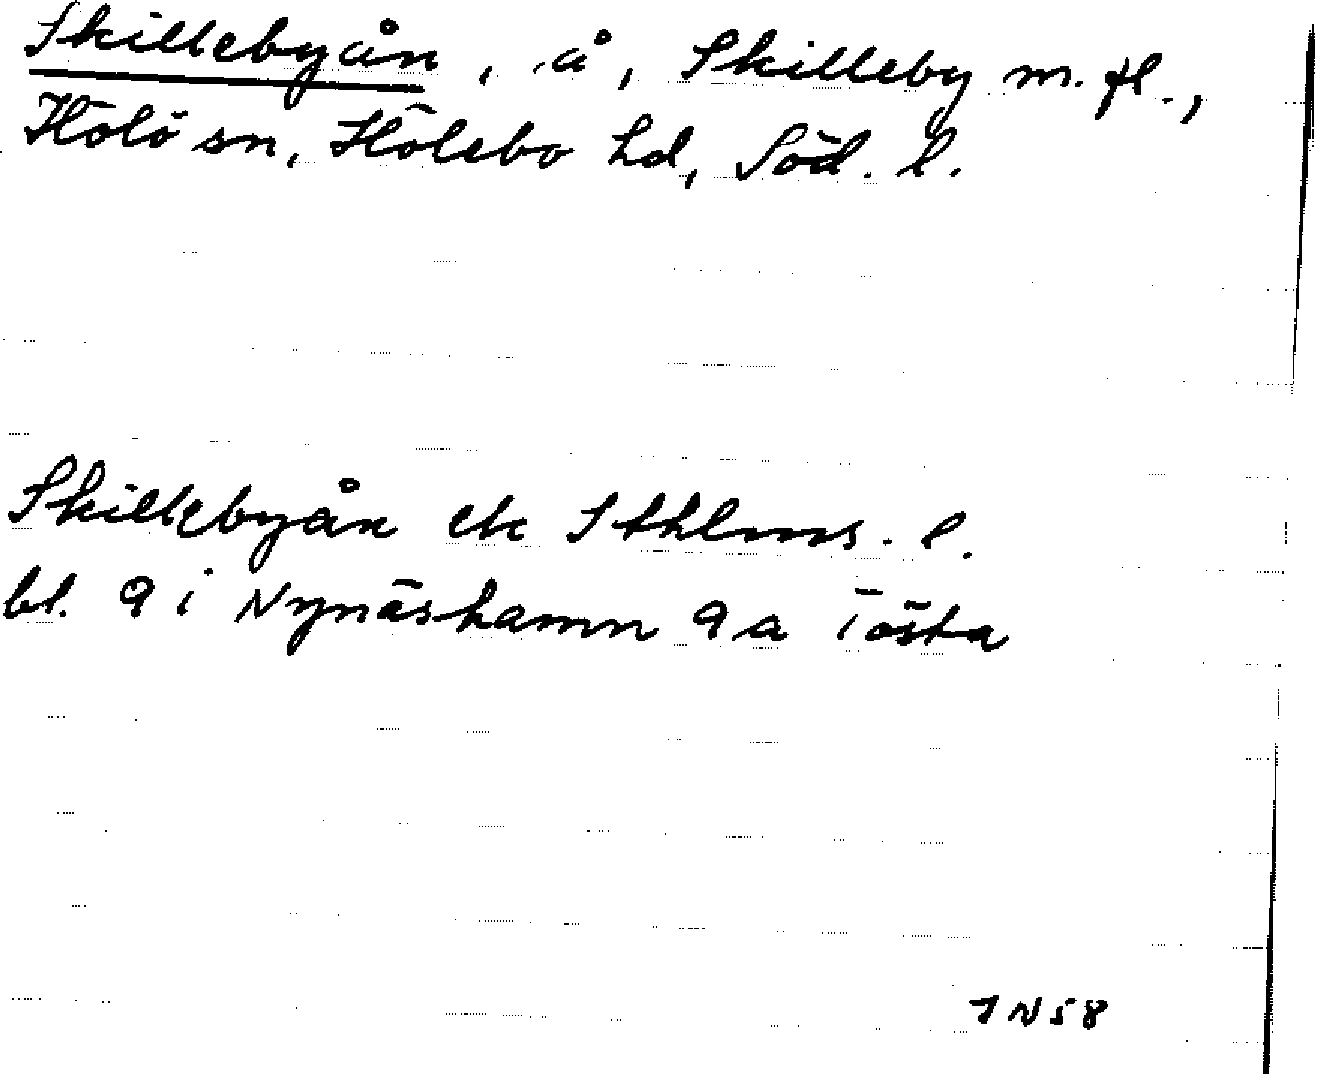 Skillebyån, å, Skilleby m. fl.,
Hölö sn, Hölebo hd, Söd. l.
Skillebyån ek Sthlms. l.
bl. 9 i Nynäshamn 9 a Tösta
JN58